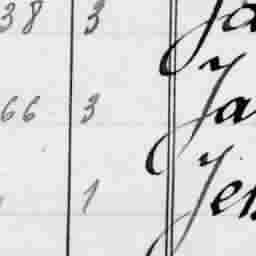 38 3 Ja
66 3 Ja
1 Jes